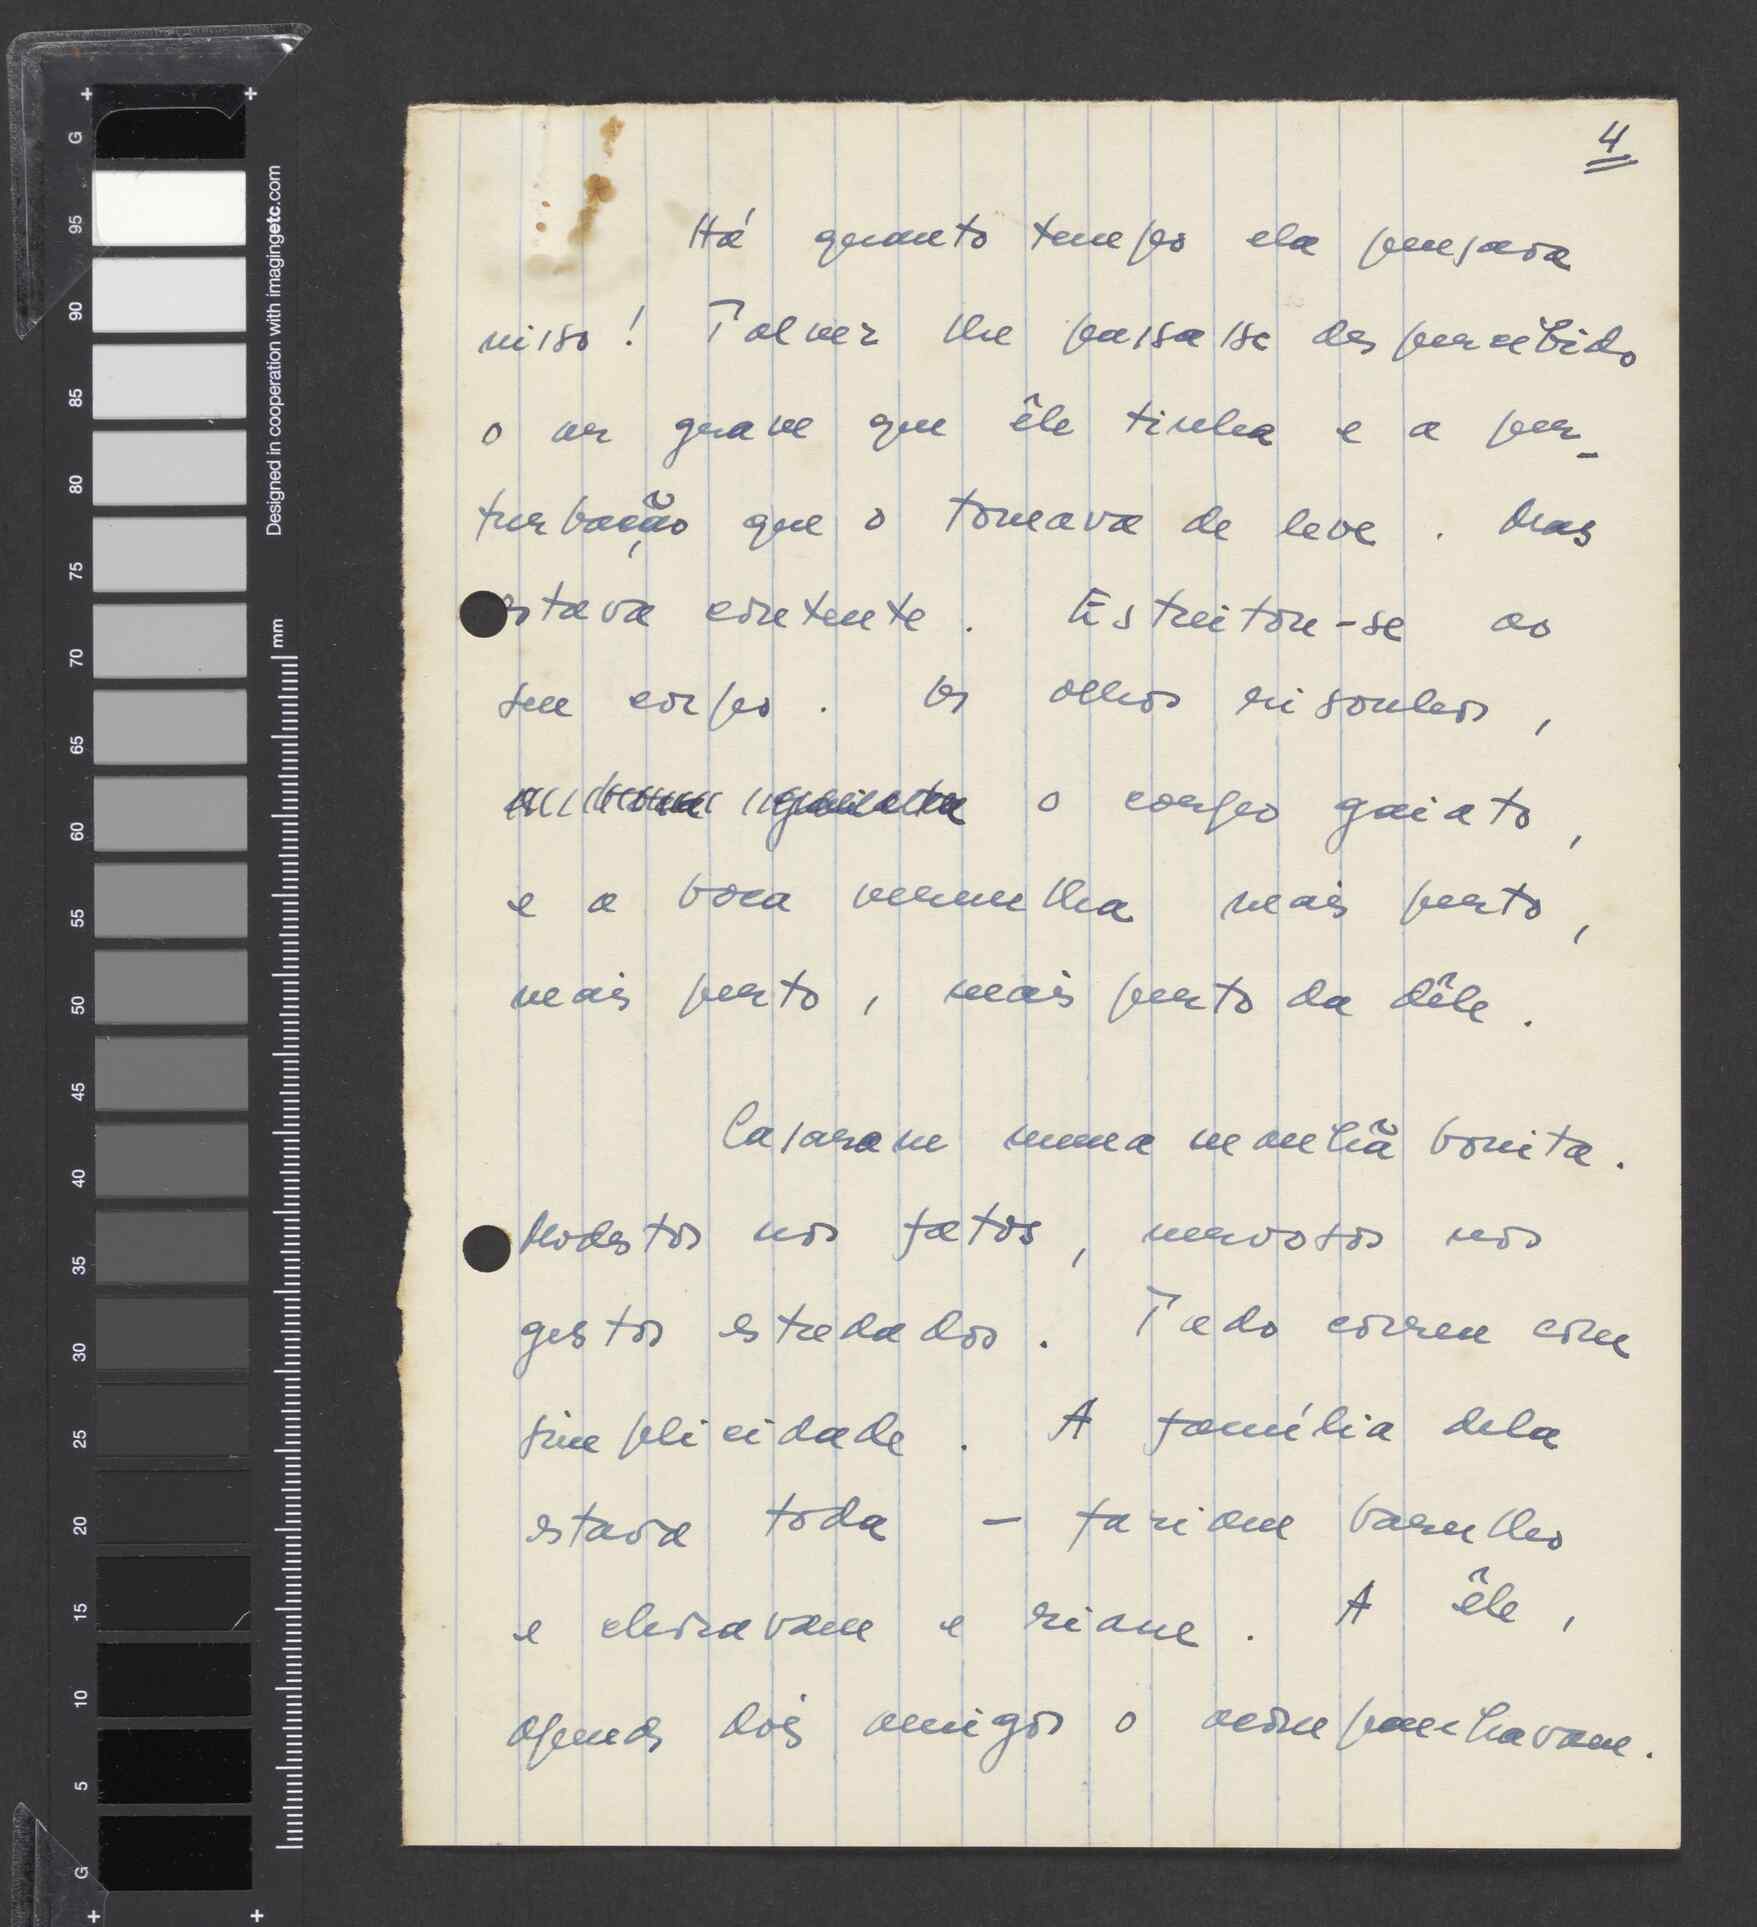 4
Há quanto tempo ela pensava
nisso! Talvez lhe passasse despercebido
o ar grave que êle tinha e a per-
turbação que o tomava de leve. Mas
estava contente. Estreitou-se ao
seu corpo. Os olhos risonhos,
o corpo gaiato,
e a boca vermelha mais perto,
mais perto, mais perto da dêle.
Casaram numa manhã bonita.
Modestos nos fatos, nervosos nos
gestos estudados. Tudo correu com
simplicidade. A família dela
estava toda – faziam barulho
e choravam e riam. A êle,
apenas dois amigos o acompanhavam.
G
95
90
85
80
75
70
65
60
55
50
45
40
35
30
25
20
15
10
5
G
Designed in cooperation with imagingetc.com
mm